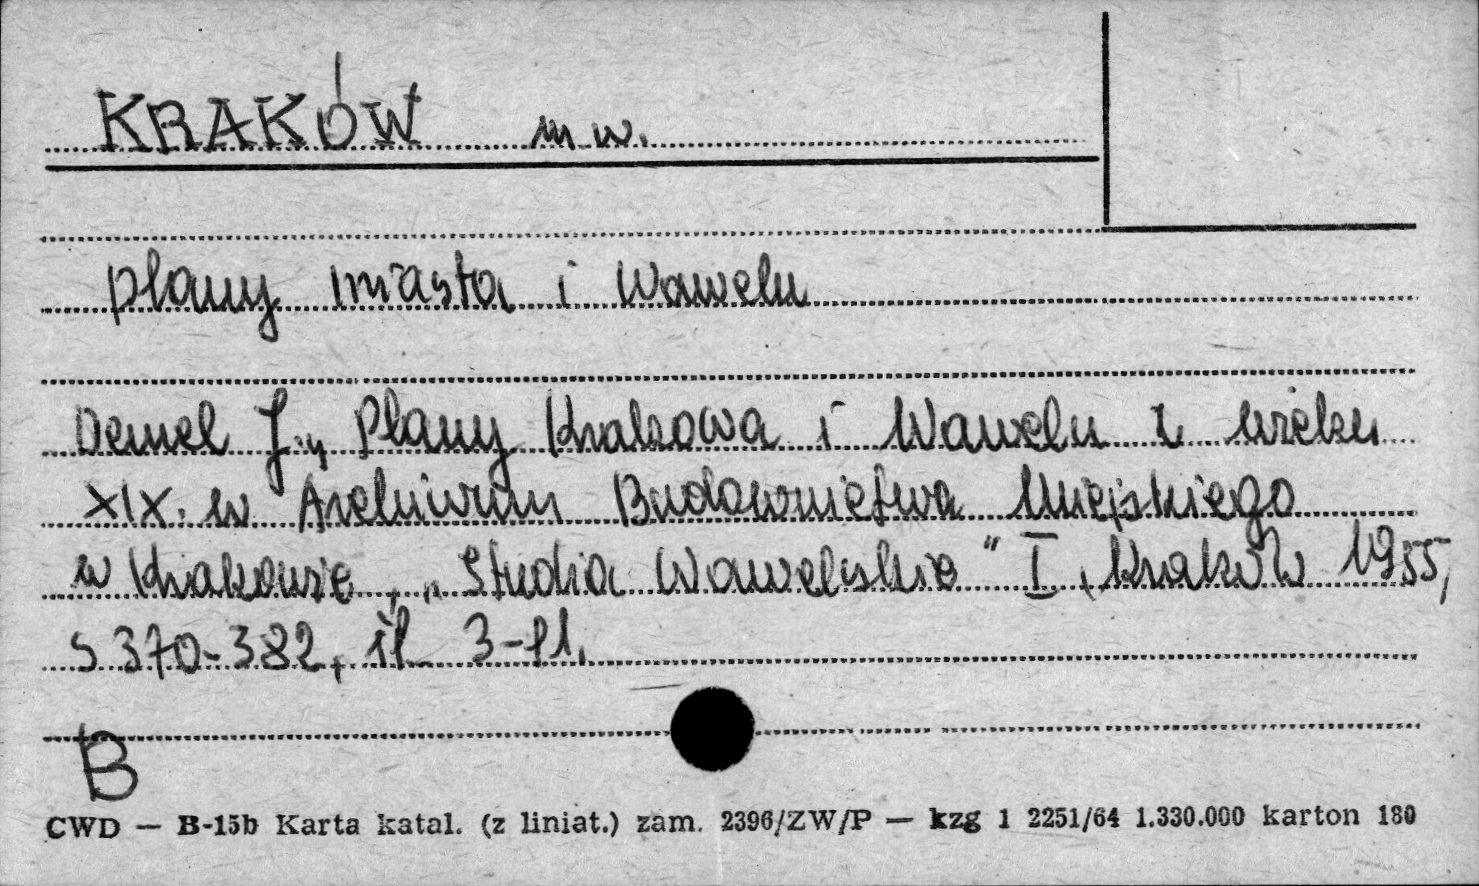 KRAKÓW m w.
plany miasta i Wawelu
Demel J., Plany Krakowa i Wawelu z wieku
XIX. w Archiwum Budownictwa Miejskiego
w Krakowie, „Studia Wawelskie" I, Kraków 1955,
s 370-382, il 3-11.
B
CWD — B-15b Karta katal. (z liniat.) zam. 2396/ZW/P — kzg 1 2251/64 1.330.000 karton 180